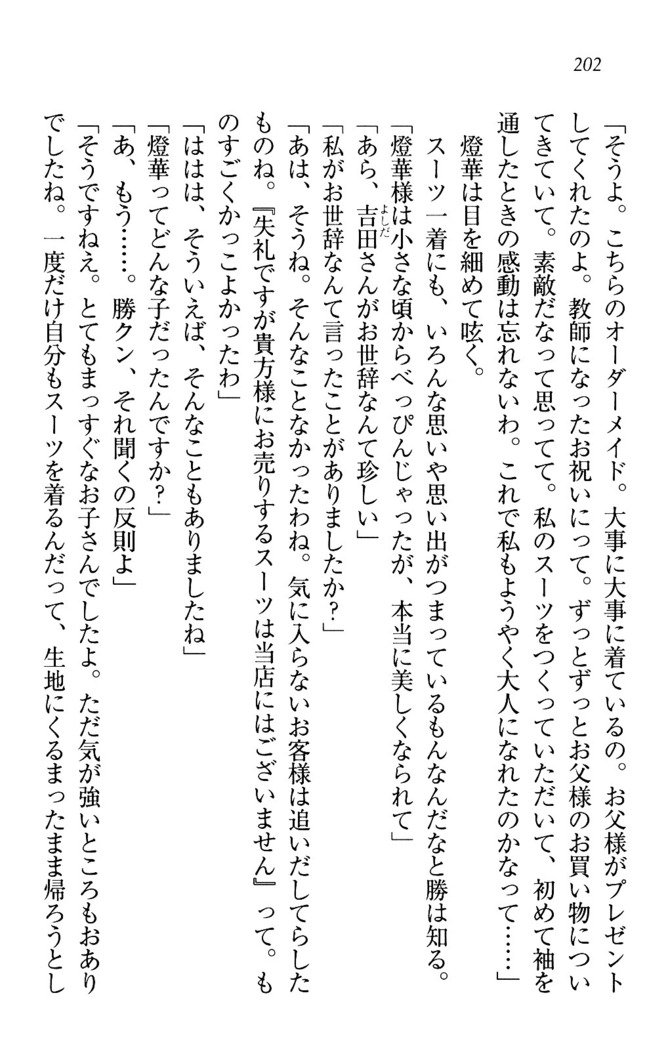 202
「そうよ。こちらのオーダーメイド。大事に大事に着ているの。お父様がプレゼント
してくれたのよ。教師になったお祝いにって。ずっとずっとお父様のお買い物につい
てきていて。素敵だなって思ってて。私のスーツをつくっていただいて、初めて袖を
通したときの感動は忘れないわ。これで私もようやく大人になれたのかなって……」
燈華は目を細めて呟く。
スーツ一着にも、いろんな思いや思い出がつまっているもんなんだなと勝は知る。
「燈華様は小さな頃からべっぴんじゃったが、本当に美しくなられて」
「あら、吉田さんがお世辞なんて珍しい」
「私がお世辞なんて言ったことがありましたか？」
「あは、そうね。そんなことなかったわね。気に入らないお客様は追いだしてらした
ものね。『失礼ですが貴方様にお売りするスーツは当店にはございません』って。も
のすごくかっこよかったわ」
「ははは、そういえば、そんなこともありましたね」
「燈華ってどんな子だったんですか？」
「あ、もう……。勝クン、それ聞くの反則よ」
「そうですねえ。とてもまっすぐなお子さんでしたよ。ただ気が強いところもおあり
でしたね。一度だけ自分もスーツを着るんだって、生地にくるまったまま帰ろうとし